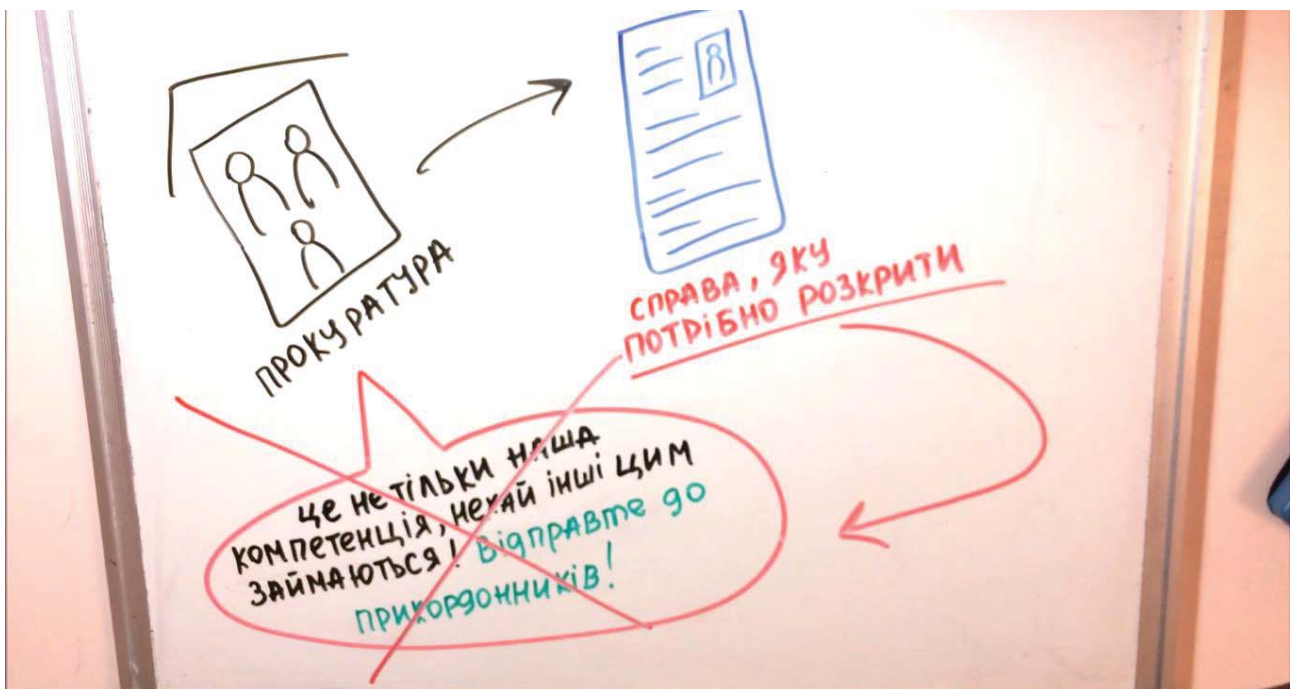 ПРОКУРАТУРА
СПРАВА, ЯКУ
ПОТРІБНО РОЗКРИТИ
ЦЕ НЕ ТІЛЬКИ НАША
КОМПЕТЕНЦІЯ, НЕХАЙ ІНШІ ЦИМ
ЗАЙМАЮТЬСЯ! Відправте до
прикордонників!